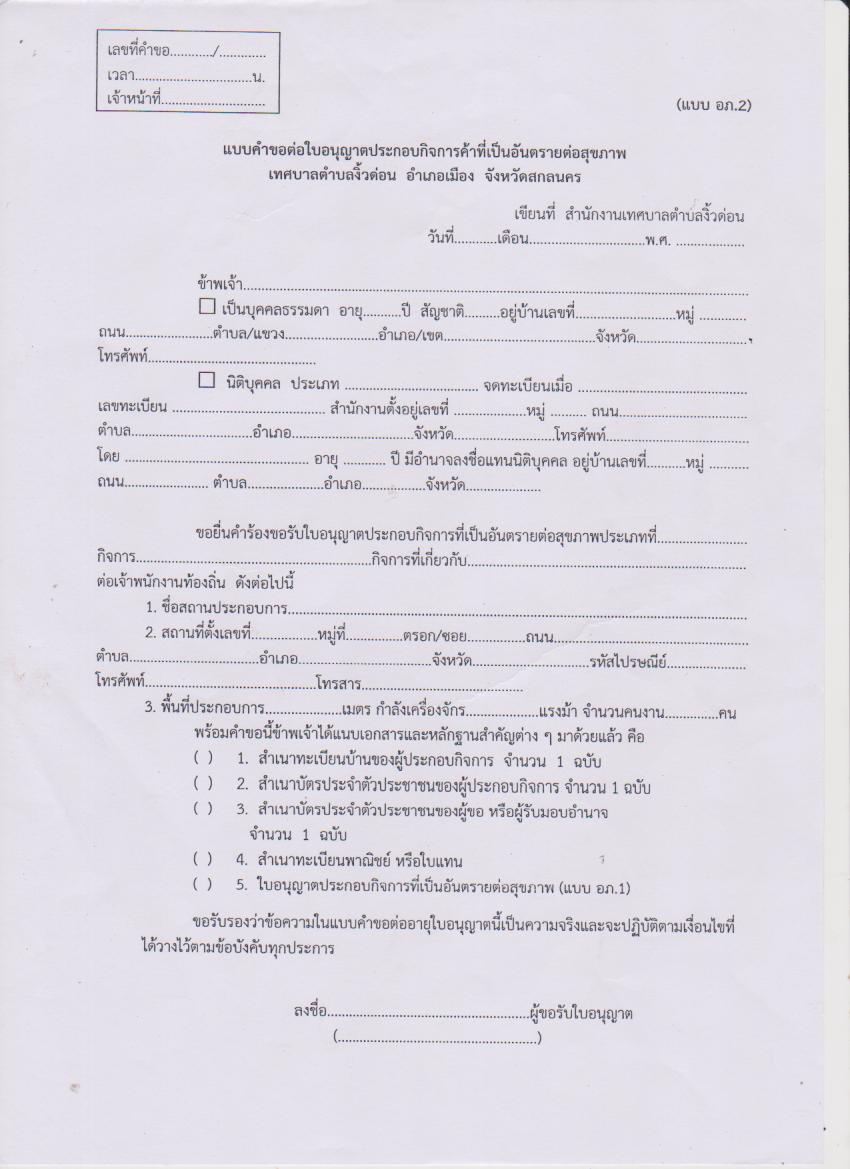 เลขที่คำขอ............/.............
เวลา...............................น.
เจ้าหน้าที่............................
(แบบ อภ.2)
แบบคำขอต่อใบอนุญาตประกอบกิจการค้าที่เป็นอันตรายต่อสุขภาพ
เทศบาลตำบลงิ้วด่อน อำเภอเมือง จังหวัดสกลนคร
เขียนที่ สำนักงานเทศบาลตำบลงิ้วด่อน
วันที่............เดือน................................พ.ศ. ...................
ข้าพเจ้า.......................................................................................................................
☐ เป็นบุคคลธรรมดา อายุ..........ปี สัญชาติ..........อยู่บ้านเลขที่...........................หมู่ .............
ถนน........................ตำบล/แขวง.........................อำเภอ/เขต..........................................จังหวัด...............................
โทรศัพท์..............................................
☐ นิติบุคคล ประเภท ..................................... จดทะเบียนเมื่อ ...............................................
เลขทะเบียน .......................................... สำนักงานตั้งอยู่เลขที่ ....................หมู่ .......... ถนน....................................
ตำบล..................................อำเภอ..................................จังหวัด............................โทรศัพท์........................................
โดย ................................................... อายุ ............ ปี มีอำนาจลงชื่อแทนนิติบุคคล อยู่บ้านเลขที่...........หมู่ ...........
ถนน....................... ตำบล.....................อำเภอ.................จังหวัด.....................
ขอยื่นคำร้องขอรับใบอนุญาตประกอบกิจการที่เป็นอันตรายต่อสุขภาพประเภทที่.........................
กิจการ.................................................................กิจการที่เกี่ยวกับ.............................................................................
ต่อเจ้าพนักงานท้องถิ่น ดังต่อไปนี้
1. ชื่อสถานประกอบการ................................................................................................................................
2. สถานที่ตั้งเลขที่..................หมู่ที่................ตรอก/ซอย................ถนน......................................................
ตำบล....................................อำเภอ.....................................จังหวัด................................รหัสไปรษณีย์......................
โทรศัพท์...............................................โทรสาร.............................................
3. พื้นที่ประกอบการ.....................เมตร กำลังเครื่องจักร....................แรงม้า จำนวนคนงาน...............คน
พร้อมคำขอนี้ข้าพเจ้าได้แนบเอกสารและหลักฐานสำคัญต่าง ๆ มาด้วยแล้ว คือ
( ) 1. สำเนาทะเบียนบ้านของผู้ประกอบกิจการ จำนวน 1 ฉบับ
( ) 2. สำเนาบัตรประจำตัวประชาชนของผู้ประกอบกิจการ จำนวน 1 ฉบับ
( ) 3. สำเนาบัตรประจำตัวประชาชนของผู้ขอ หรือผู้รับมอบอำนาจ
จำนวน 1 ฉบับ
( ) 4. สำเนาทะเบียนพาณิชย์ หรือใบแทน
( ) 5. ใบอนุญาตประกอบกิจการที่เป็นอันตรายต่อสุขภาพ (แบบ อภ.1)
ขอรับรองว่าข้อความในแบบคำขอต่ออายุใบอนุญาตนี้เป็นความจริงและจะปฏิบัติตามเงื่อนไขที่
ได้วางไว้ตามข้อบังคับทุกประการ
ลงชื่อ........................................................ผู้ขอรับใบอนุญาต
(.......................................................)